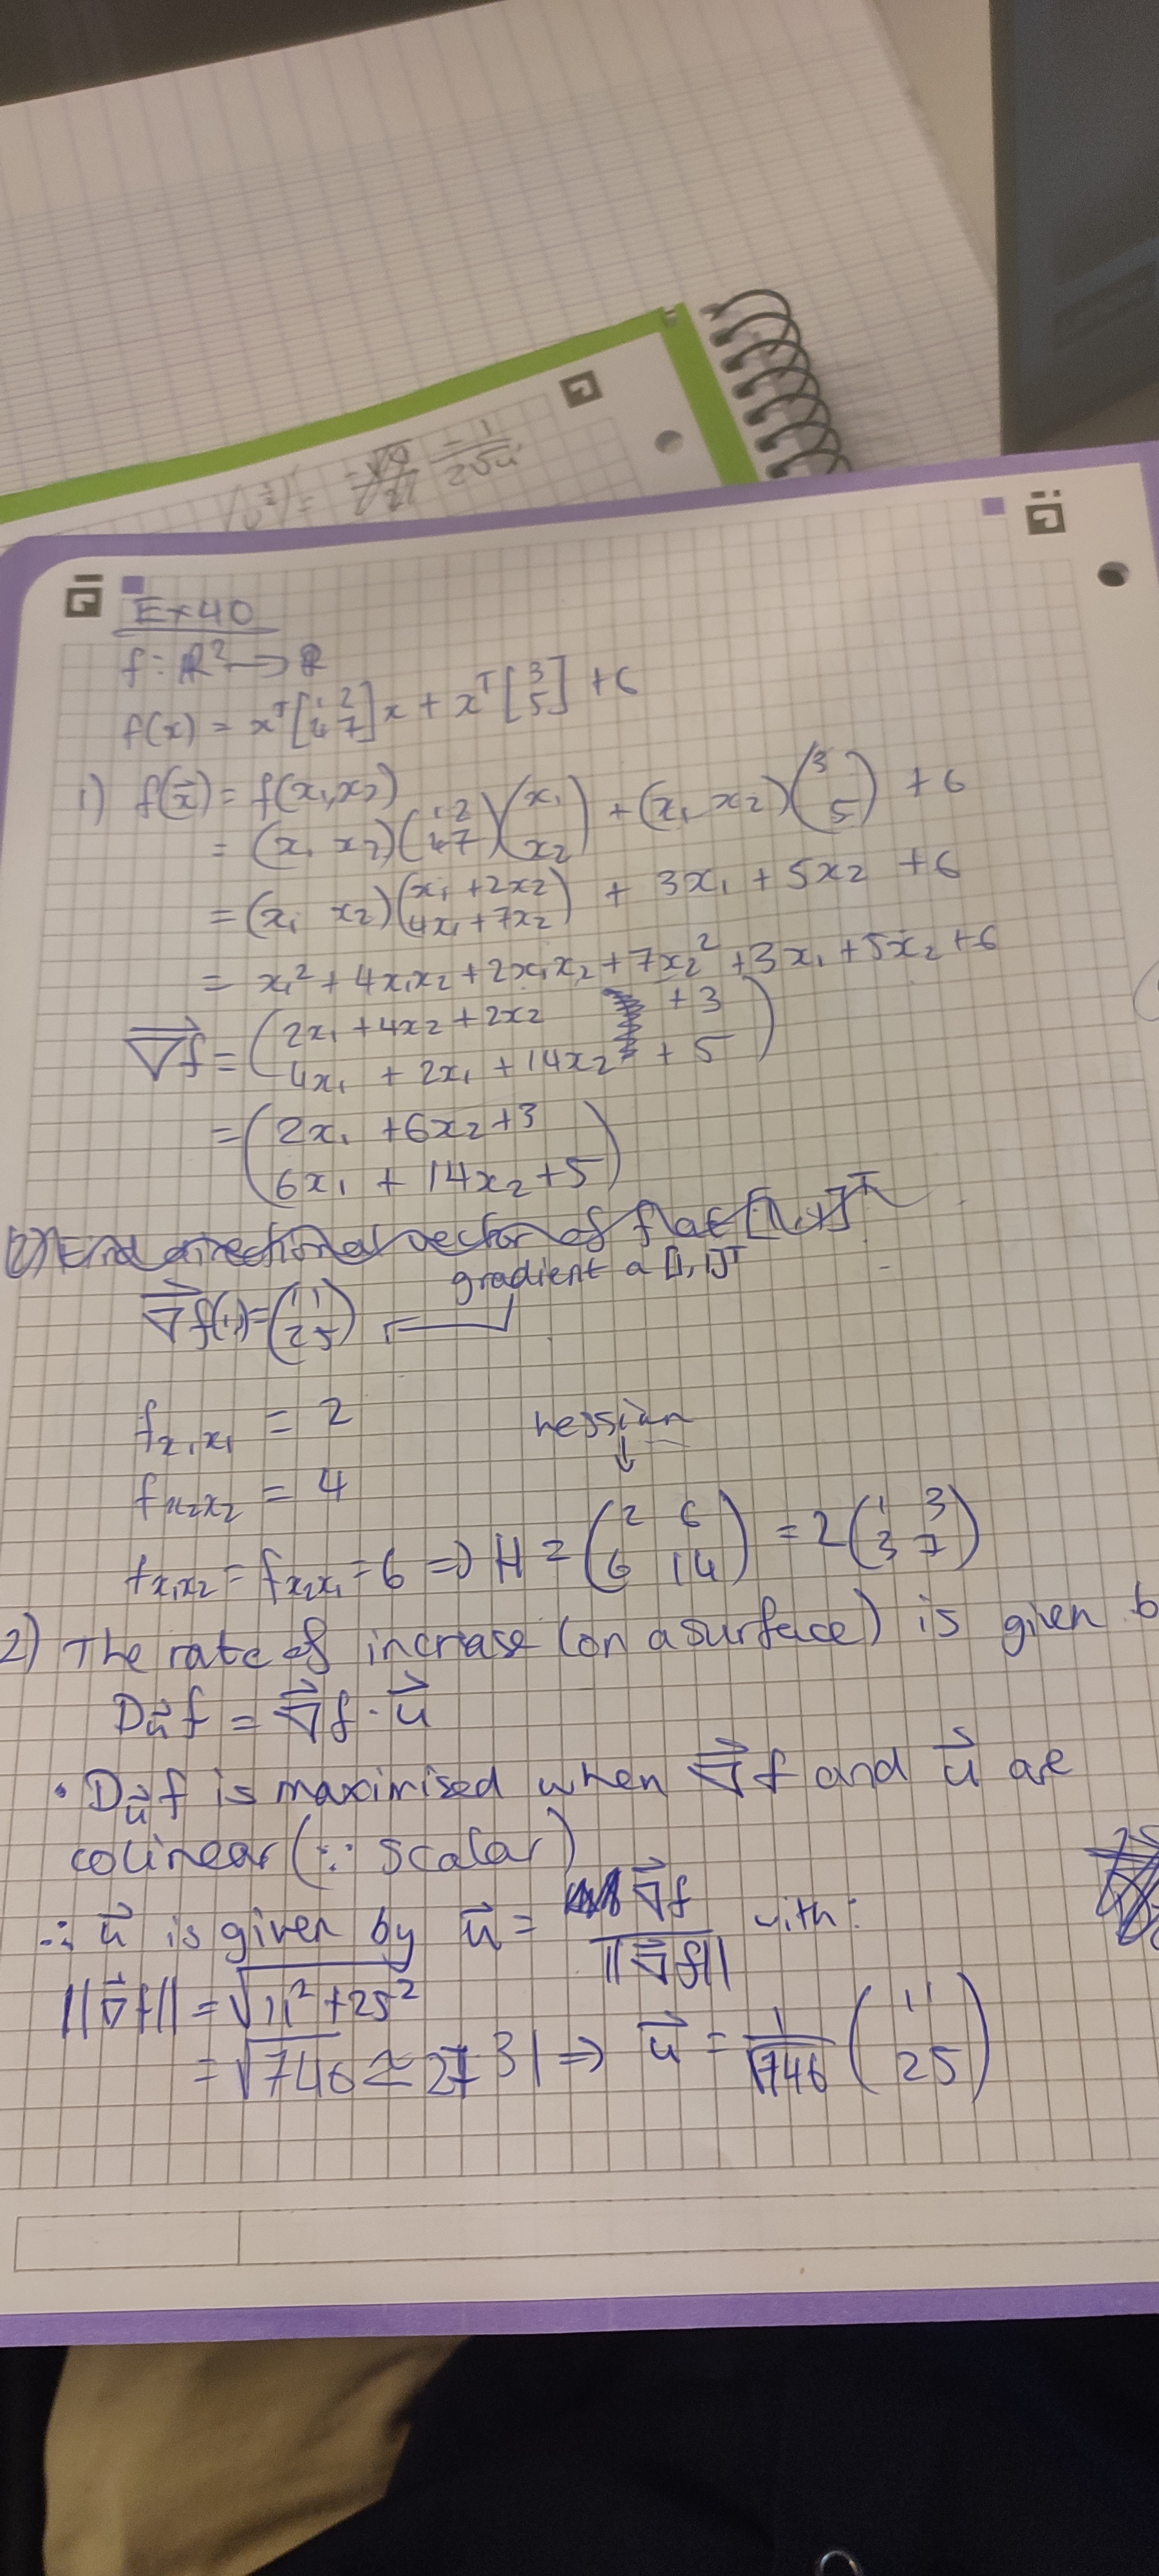 = 1/2√u
Ex40
f: ℝ² → ℝ
f(x) = xᵀ[1 2; 4 7]x + xᵀ[3; 5] + 6
1) f(x⃗) = f(x₁,x₂)
= (x₁ x₂)(1 2; 4 7)(x₁; x₂) + (x₁ x₂)(3; 5) + 6
= (x₁ x₂)(x₁ + 2x₂; 4x₁ + 7x₂) + 3x₁ + 5x₂ + 6
= x₁² + 4x₁x₂ + 2x₁x₂ + 7x₂² + 3x₁ + 5x₂ + 6
∇⃗f = (2x₁ + 4x₂ + 2x₂ + 3; 4x₁ + 2x₁ + 14x₂ + 5)
= (2x₁ + 6x₂ + 3; 6x₁ + 14x₂ + 5)
2) Find directional vector of f at [1,1]ᵀ
gradient a [1,1]ᵀ
∇⃗f(1,1) = (11; 25)
f x₁x₁ = 2
hessian
f x₂x₂ = 4
f x₁x₂ = f x₂x₁ = 6 ⇒ H = (2 6; 6 14) = 2(1 3; 3 7)
2) The rate of increase (on a surface) is given b
Du⃗f = ∇⃗f · u⃗
• Du⃗f is maximised when ∇⃗f and u⃗ are
colinear (∵ scalar)
∴ u⃗ is given by u⃗ = ∇⃗f/||∇⃗f|| with:
||∇⃗f|| = √11² + 25²
= √746 ≈ 27 31 ⇒ u⃗ = 1/√746 (11; 25)